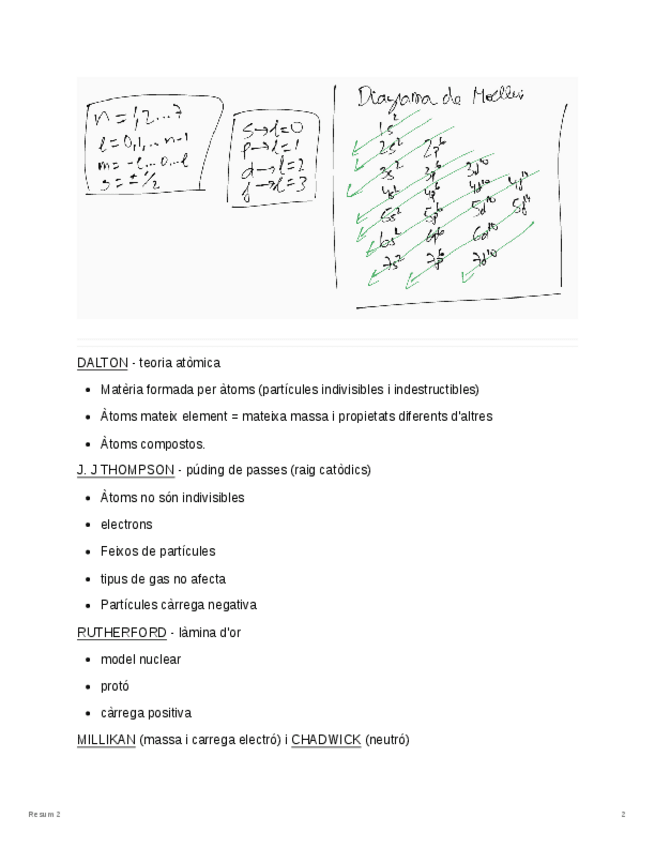 n = 1,2...7
l = 0,1,.. n-1
m = -l...0..l
s = ± 1/2
s → l = 0
p → l = 1
d → l = 2
f → l = 3
Diagrama de Moeller
1s²
2s² 2p⁶
3s² 3p⁶ 3d¹⁰
4s² 4p⁶ 4d¹⁰ 4f¹⁴
5s² 5p⁶ 5d¹⁰ 5f¹⁴
6s² 6p⁶ 6d¹⁰
7s² 7p⁶ 7d¹⁰
DALTON - teoria atòmica
• Matèria formada per àtoms (partícules indivisibles i indestructibles)
• Àtoms mateix element = mateixa massa i propietats diferents d'altres
• Àtoms compostos.
J. J THOMPSON - púding de passes (raig catòdics)
• Àtoms no són indivisibles
• electrons
• Feixos de partícules
• tipus de gas no afecta
• Partícules càrrega negativa
RUTHERFORD - làmina d'or
• model nuclear
• protó
• càrrega positiva
MILLIKAN (massa i carrega electró) i CHADWICK (neutró)
Resum 2 2